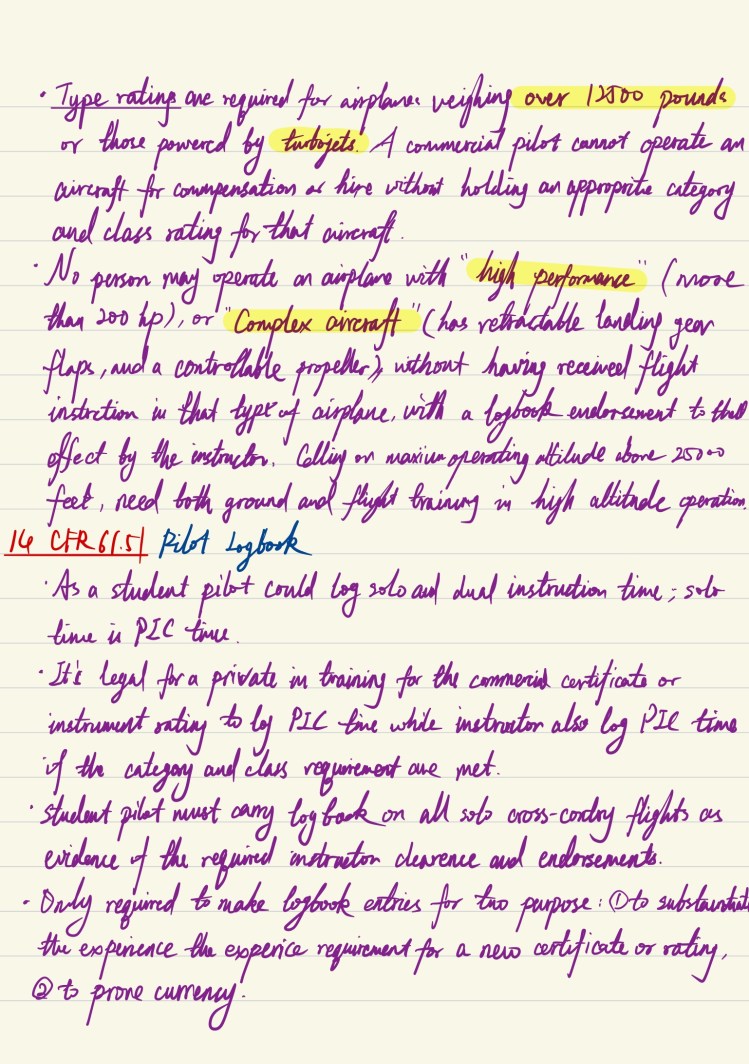 · Type rating are required for airplanes weighing over 12500 pounds
or those powered by turbojets. A commercial pilot cannot operate an
aircraft for commpensation or hire without holding an approprite category
and class rating for that aircraft.
· No person may operate an airplane with "high performance" (more
than 200 hp), or "Complex aircraft" (has retractable landing gear
flaps, and a controllable propeller), without having received flight
instrction in that type of airplane, with a logbook endorsement to that
effect by the instructor. Ceiling or maxium operating altitude above 25000
feet, need both ground and flight training in high altitude operation.
14 CFR 61.51 Pilot Logbook
· As a student pilot could log solo and dual instruction time; solo
time is PIC time.
· It's legal for a private in training for the commercial certificate or
instrument rating to log PIC time while instructor also log PIC time
if the category and class requirement are met.
· Student pilot must carry logbook on all solo cross-contry flights as
evidence of the required instruction clearence and endorsements.
· Only required to make logbook entries for two purpose: ① to substantiate
the experience the experice requirement for a new certificate or rating,
② to prone currency.